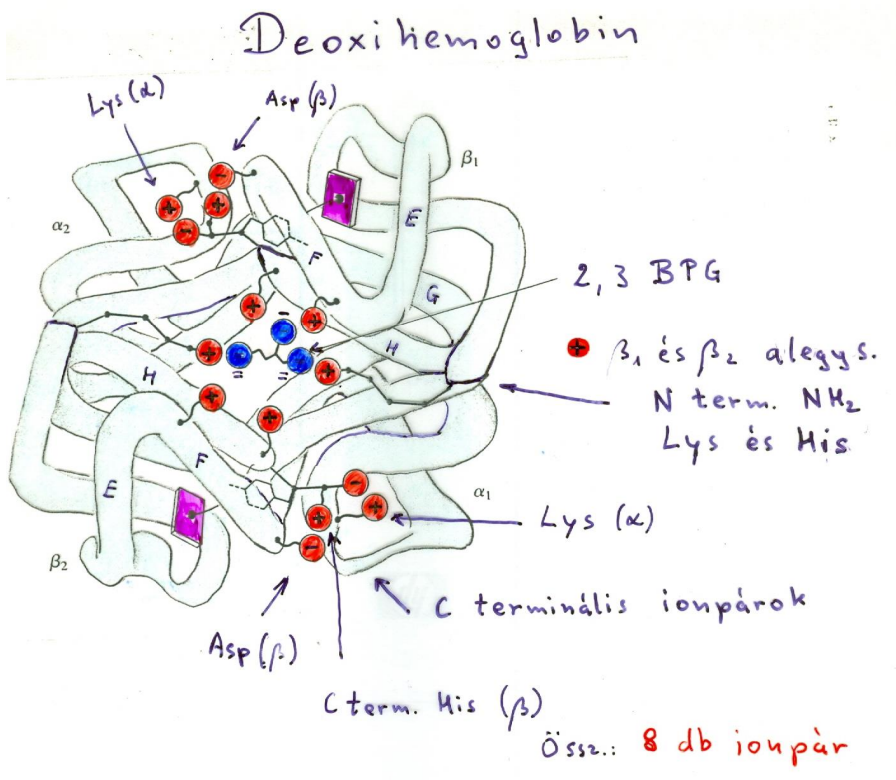 Deoxihemoglobin
Lys (α)
Asp (β)
β₁
α₂
E
F
G
2, 3 BPG
H
β₁ és β₂ alegys.
N term. NH₂
Lys és His
H
F
E
α₁
Lys (α)
β₂
C terminális ionpárok
Asp (β)
C term. His (β)
Össz.: 8 db ionpár